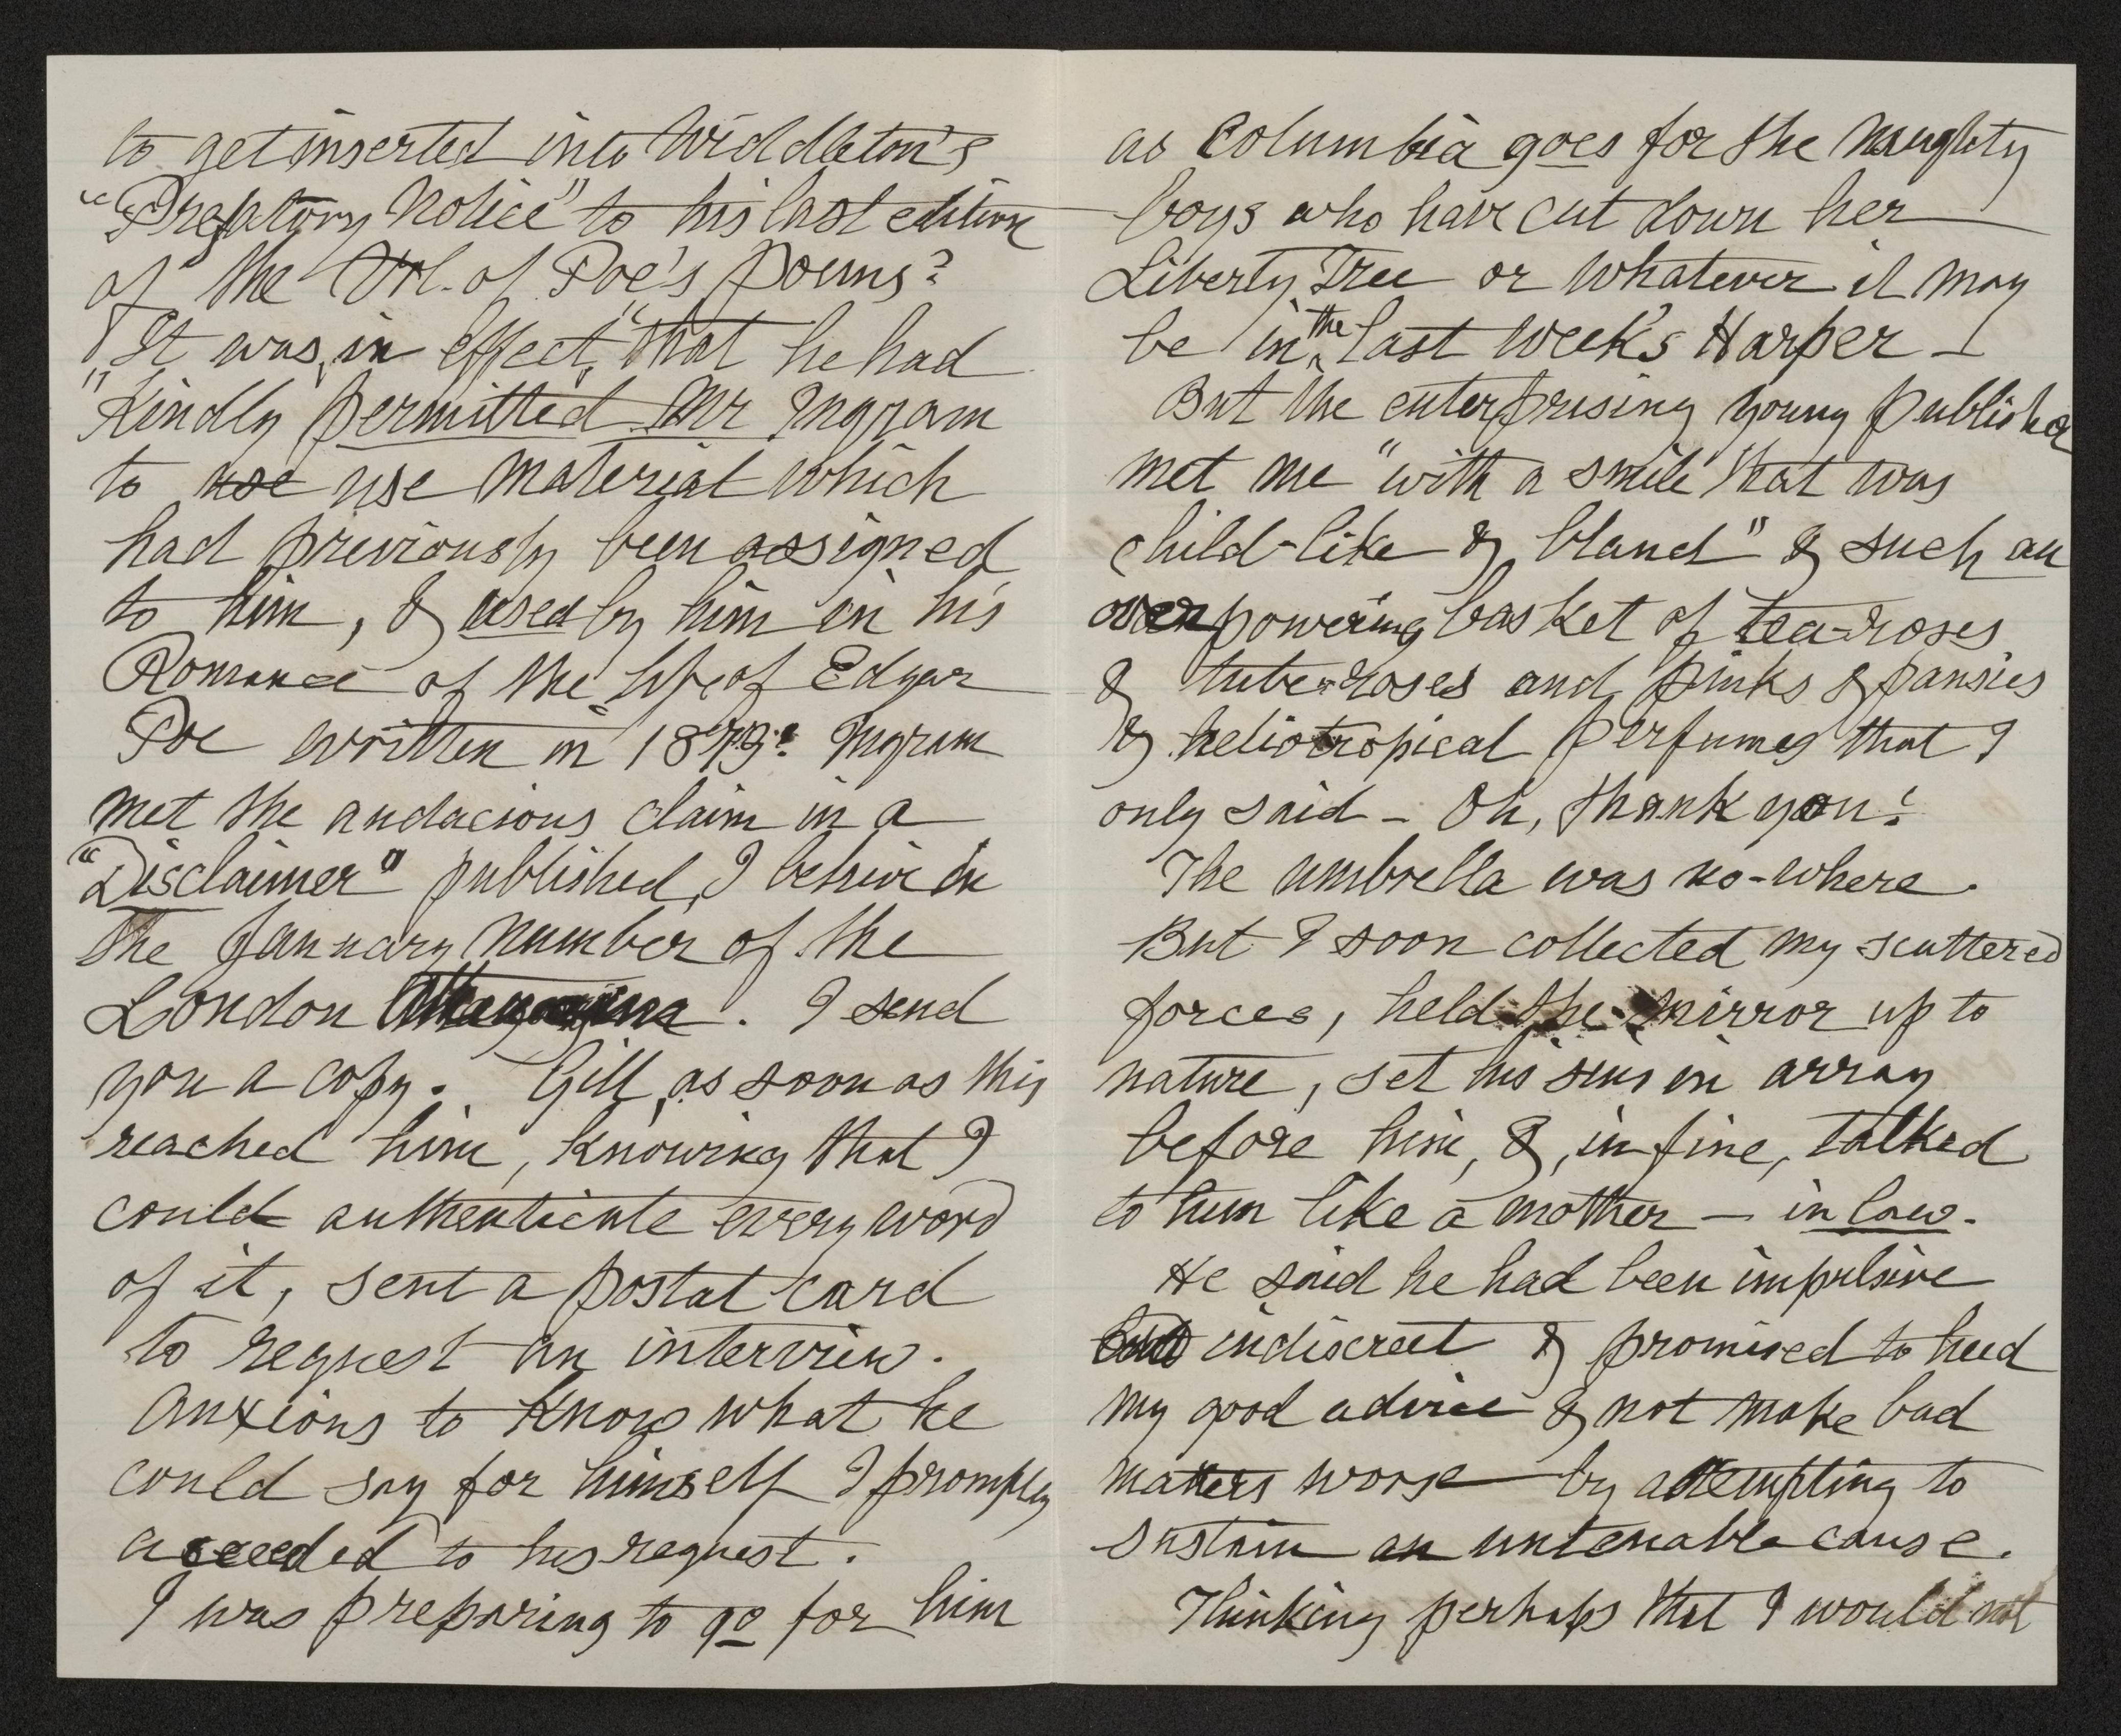 to get inserted into Widdleton's
"Prefatory Notice" to his last edition
of the Vol. of Poe's Poems?
It was, in effect, "that he had
"Kindly permitted Mr Ingram
to use use material which
had previously been assigned
to him, & used by him in his
Romance of the Life of Edgar
Poe written in 1873! Ingram
met the audacious claim in a
"Disclaimer" published, I believe in
the January number of the
London . I send
you a copy. Gill, as soon as this
reached him, knowing that I
could authenticate every word
of it, sent a postal card
to request an interview.
Anxious to know what he
could say for himself I promptly
acceeded to his request.
I was preparing to go for him
as Columbia goes for the naughty
boys who have cut down her
Liberty Tree or whatever it may
be in the last week's Harper —
But the enterprising young publisher
met me "with a smile that was
child-like & bland" & such an
overpowering basket of tea-roses
& tube-roses and pinks & pansies
& heliotropical perfumes that I
only said – Oh, thank you!
The umbrella was no-where.
But I soon collected my scattered
forces, held the mirror up to
nature, set his sins in array
before him, &, in fine, talked
to him like a mother — in law.
He said he had been impulsive
and indiscreet & promised to heed
my good advice & not make bad
matters worse by attempting to
sustain an untenable cause.
Thinking perhaps that I would not